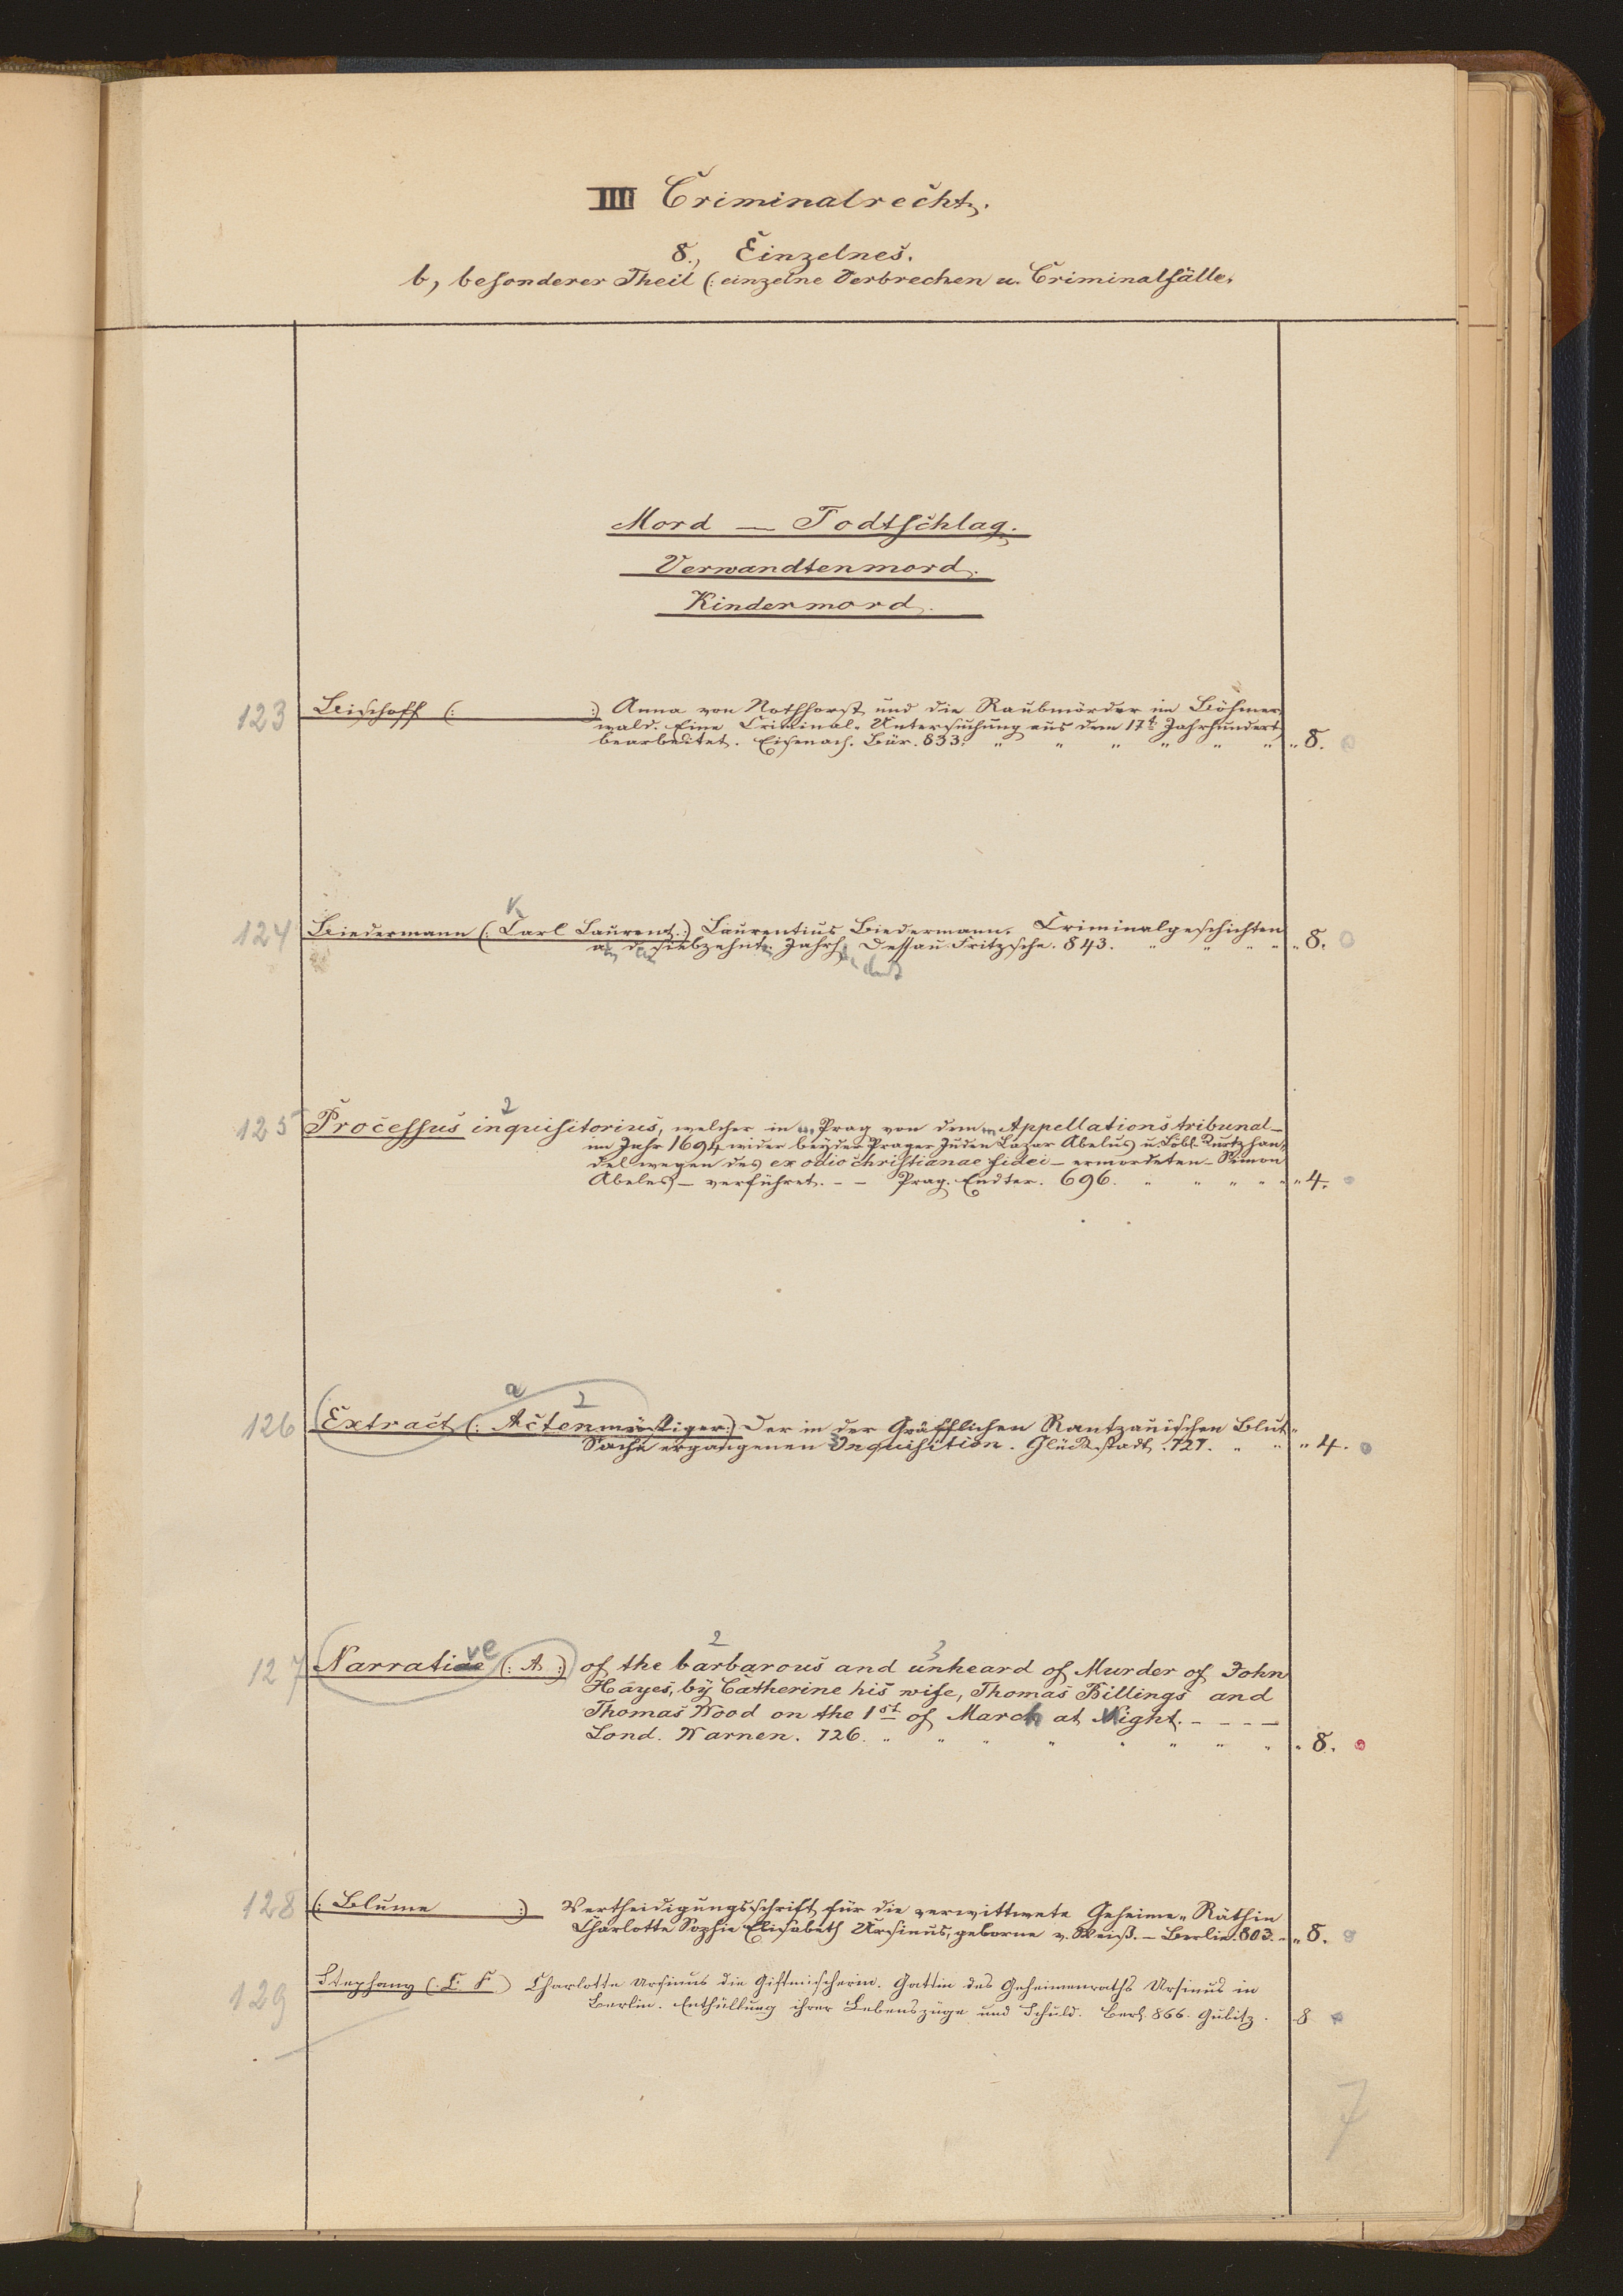 IIII Criminalrecht.
8., Einzelnes.
b, besonderer Theil (: einzelne Verbrechen u. Criminalfälle.
Mord — Todtschlag.
Verwandtenmord.
Kindermord.
123 Bischoff (: :) Anna von Nothhorst und die Raubmörder im Böhmer
wald. Eine Criminal-Untersuchung aus dem 17t. Jahrhundert
bearbeitet. Eisenach. Bär. 833. " " " " " " " 8.
K
124 Biedermann (: Carl Laurent. :) Laurentius Biedermann. Criminalgeschichten
a. d. siebzehnt. Jahrh. Dessau Fritzsche. 843. " " " " " 8.
2
125 Processus inquisitorius, welcher in Prag von dem Appellationstribunal
im Jahr 1694 wider beyder Prager Juden Lazar Abelus u. Löbl. Kurtzhan,
del wegen des ex odio christianae fidei – ermordeten – Simon
Abeles – verführet. – – Prag. Endter. 696. " " " " " 4.
a 2
126 Extract (: Actenmässiger :) Der in der Gräfflichen Rantzauischen Blut-
Sache ergangenen Inquisition. Glückstadt. 721. " " " 4.
2 3
127 Narrative (: A :) of the barbarous and unheard of Murder of John
Hayes, by Catherine his wife, Thomas Billings and
Thomas Wood on the 1st of March at Night. – – – –
Lond. Warnen. 726. " " " " " " " " " 8.
128 (: Blume :) Vertheidigungsschrift für die verwittwete Geheime-Räthin
Charlotte Sophie Elisabeth Ursinus, geborne v. Weiß. – Berlin. 803. – " 8.
129 Stephany (: C. F. ) Charlotte Ursinus die Giftmischerin. Gattin des Geheimenraths Ursinus in
Berlin. Enthüllung ihrer Lebenszüge und Schuld. Berl. 866. Gubitz. 8
7